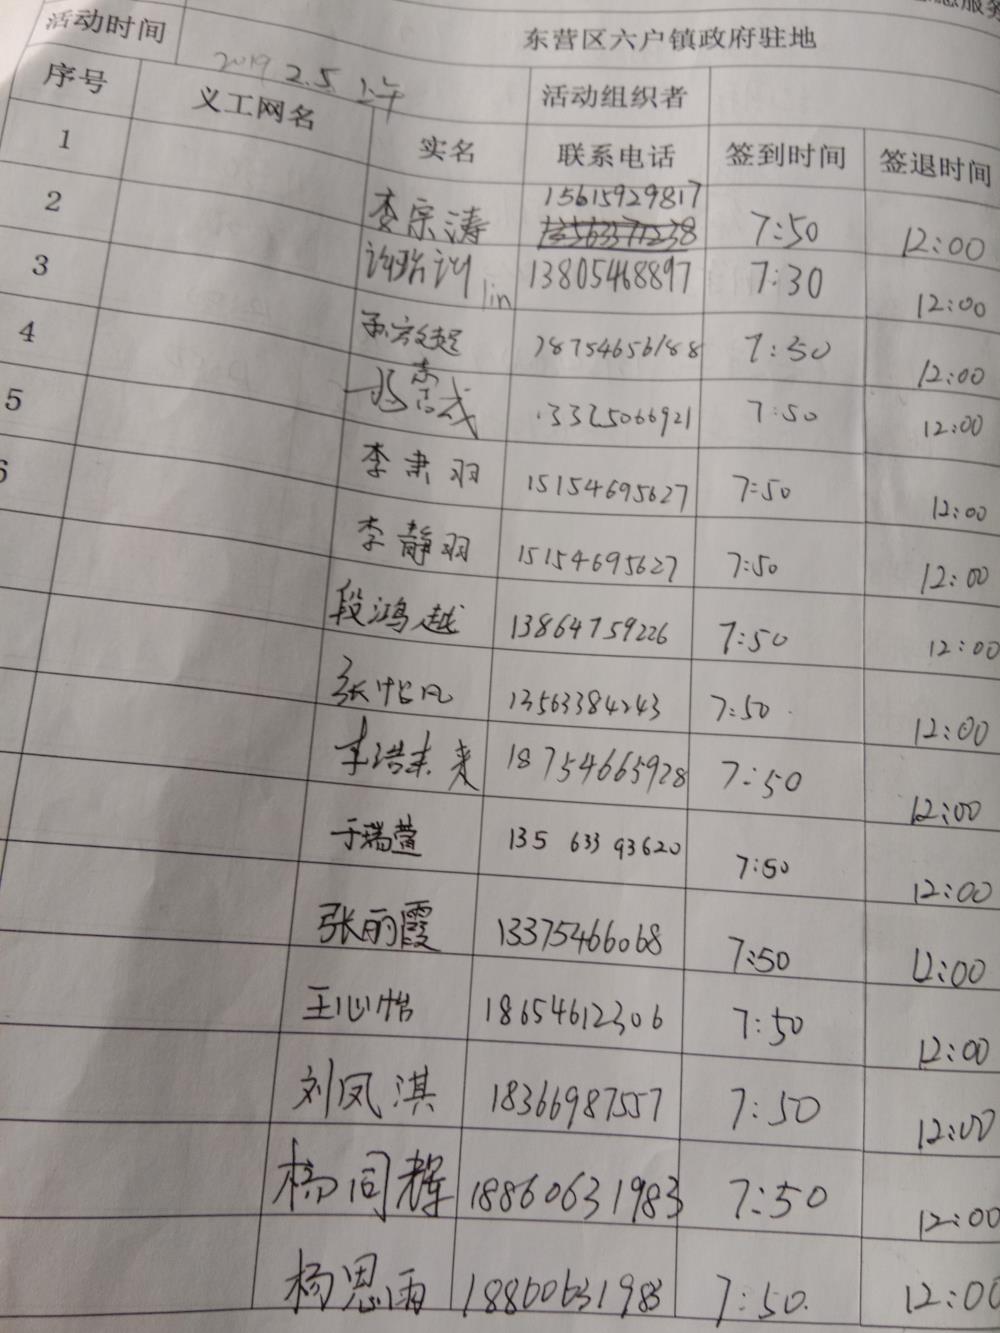 服务
活动时间 2019 2.5 上午 东营区六户镇政府驻地
序号 义工网名 实名 活动组织者
联系电话 签到时间 签退时间
1 李宗涛 15615929817 7:50 12:00
2 lin 13805468897 7:30 12:00
3 18754656188 7:50 12:00
4 13325066921 7:50 12:00
5 李肃羽 15154695627 7:50 12:00
6 李静羽 15154695627 7:50 12:00
段鸿越 13864759226 7:50 12:00
张怡凡 13563384243 7:50 12:00
李浩未来 18754665928 7:50 12:00
于瑞萱 135 633 93620 7:50 12:00
张丽霞 13375466068 7:50 12:00
王心怡 18654612306 7:50 12:00
刘凤淇 18366987557 7:50 12:00
杨同辉 18860631983 7:50 12:00
杨思雨 18860631983 7:50 12:00